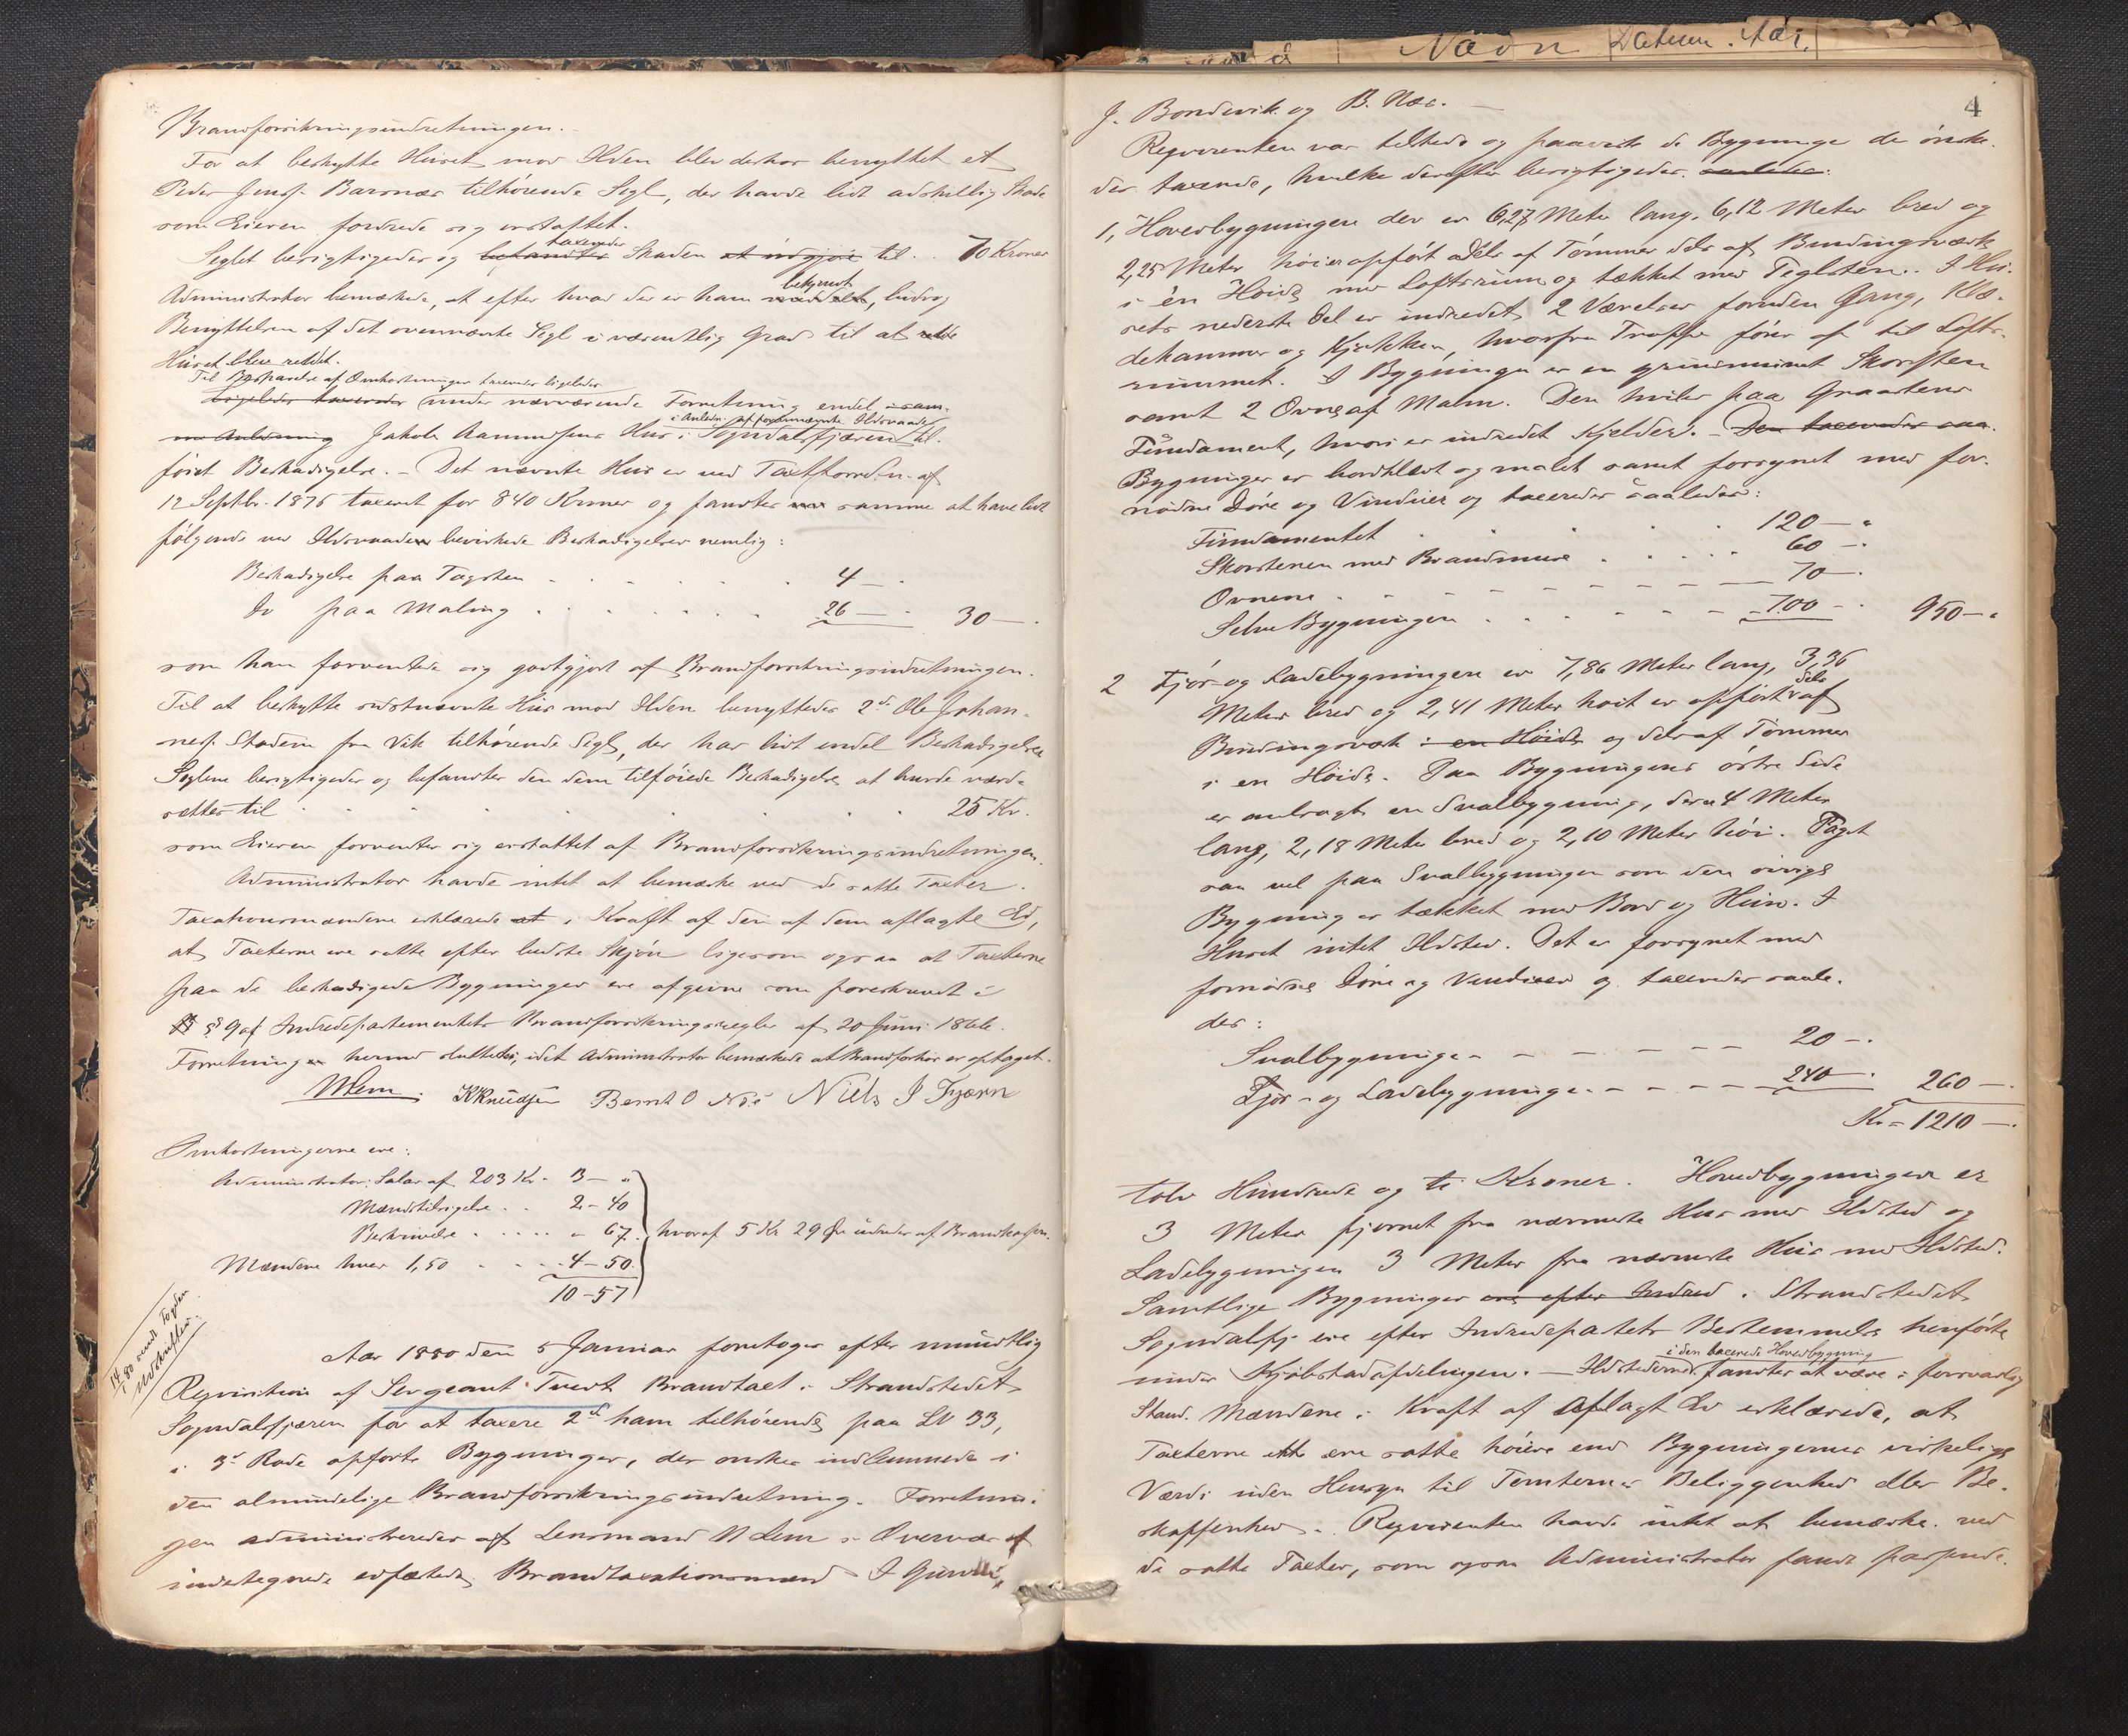 Brandforsikringsindretningen.
For at beskytte Huset mod Ilden blev derhos benyttet et
Peder Jenss. Barsnæs tilhørende Segl, der havde lidt adskillig Skade
som Eieren fordrede sig erstattet.
Seglet besigtigedes og befandtes taxeredes Skaden at udgjøre til . . 70 Kroner
Administrator bemærkede, at efter hvad der er ham meddelt bekjendt, bidrog
Benyttelsen af det ovennævnte Segl i væsentlig Grad til at redde
Huset blev reddet.
Til Besparelse af Omkostninger taxeredes ligeledes
Ligeledes taxeredes under nærværende Forretning endel i sam-
me Anledning Jakob Aamundsens Hus i Sogndalsfjæren i Anledn. af forannævnte Ildsvaade til-
føiet Beskadigelse. – Det nævnte Hus er ved Taxtforretn. af
12 Septbr. 1876 taxeret for 840 Kroner og fandtes samme at have lidt
følgende ved Ildsvaaden bevirkede Beskadigelser nemlig:
Beskadigelse paa Tagsten . . . . . 4 —
Do paa Maling . . . . . 26 — 30 —.
som han forventede sig godtgjort af Brandforsikringsindretningen.
Til at beskytte sidstnævnte Hus mod Ilden benyttedes 2de Ole Johan-
nes. Stadem fra Vik tilhørende Segl, der har lidt endel Beskadigelse
Seglene besigtigedes og befandtes den dem tilføiede Beskadigelse at burde værd-
sættes til . . . . . 25 Kr.
som Eieren forventer sig erstattet af Brandforsikringsindretningen.
Administrator havde intet at bemærke ved de satte Taxter.
Taxationsmændene erklærede at i Kraft af den af dem aflagte Ed,
at Taxterne ere satte efter bedste Skjøn ligesom ogsaa at Taxterne
paa de beskadigede Bygninger ere afgivne som foreskrevet i
§ 9 af Indredepartementets Brandforsikringsregler af 20 Juni 1866.
Forretningen hermed sluttedes, idet Administrator bemærkede at Brandforhør er optaget.
MLem. KKnudsen Bernt O Næs Niels J Fjærn
Omkostningerne ere:
Administrator: Salær af 203 Kr. 3 — "
Mændstilsigelse . . 2 - 40
Beskrivelse . . . . . " 67
Mændene hver 1,50 . . . . 4 - 50
hvoraf 5 Kr 29 Øre udredes af Brandkassen.
10 - 57
14/1 80 sendt Fogden
Udskrifter.
Aar 1880 den 5 Januar foretoges efter mundtlig
Reqvisition af Sergeant Tvedt Brandtaxt i Strandstedet
Sogndalsfjæren for at taxere 2de ham tilhørende paa LN 33,
i 3die Rode opførte Bygninger, der ønskes indlemmede i
den almindelige Brandforsikringsindretning. Forretnin-
gen administreredes af Lensmand M Lem i Overvær af
undertegnede edfæstede Brandtaxationsmænd
4
J. Bondevik og B. Næs. —
Reqvirenten var tilstede og paaviste de Bygninger de ønske-
des taxerede, hvilke derefter besigtigedes. saaledes:
1, Hovedbygningen der er 6,27 Meter lang, 6,12 Meter bred og
2,25 Meter høi er opført dels af Tømmer dels af Bindingsværk
i én Høide med Loftsrum og tækket med Teglsten. I Hu-
sets nederste Del er indredet 2 Værelser foruden Gang, Klæ-
dekammer og Kjøkken, hvorfra Trappe fører op til Lofts-
rummet. I Bygningen er en grundmuret Skorsten
samt 2 Ovne af Malm. Den hviler paa Graastens
Fundament, hvori er indredet Kjelder. – Den taxeredes saa-
Bygningen er bordklædt og malet samt forsynet med for-
nødne Døre og Vinduer og taxeredes saaledes:
Fundamentet . . . . . 120 — "
Skorstenen med Brandmure . . . . . 60 —.
Ovnene . . — — — — — 70 —.
Selve Bygningen . . . . — — — 700 —. 950 — "
2 Fjøs- og Ladebygningen er 7,86 Meter lang, 3,36
Meter bred og 2,41 Meter høit er opført dels af
Bindingsværk i en Høide og dels af Tømmer
i en Høide. Paa Bygningens østre Side
er anbragt en Svalbygning, der er 4 Meter
lang, 2,18 Meter bred og 2,10 Meter høi. Taget
saa vel paa Svalbygningen som den øvrige
Bygning er tækket med Bord og Heller. I
Huset intet Ildsted. Det er forsynet med
fornødne Døre og Vinduer og taxeredes saale-
des:
Svalbygningen — — — — — 20 —.
Fjøs- og Ladebygningen — — — — 240 —. 260 —.
Kr = 1210 —.
tolv Hundrede og ti Kroner. Hovedbygningen er
3 Meter fjernet fra nærmeste Hus med Ildsted og
Ladebygningen 3 Meter fra nærmeste Hus med Ildsted.
Samtlige Bygninger ere efter Indred i Strandstedet
Sogndalsfj. ere efter Indredepartets Bestemmelse henførte
under Kjøbstadafdelingen. — Ildstederne i den taxerede Hovedbygning fandtes at være i forsvarlig
Stand. Mændene i Kraft af aflagt Ed erklærede, at
Taxterne ikke ere satte høiere end Bygningernes virkelige
Værdi uden Hensyn til Tomternes Beliggenhed eller Be-
skaffenhed. Reqvirenten havde intet at bemærke ved
de satte Taxter, som ogsaa Administrator fandt passende.
Navn Datum. Aar.